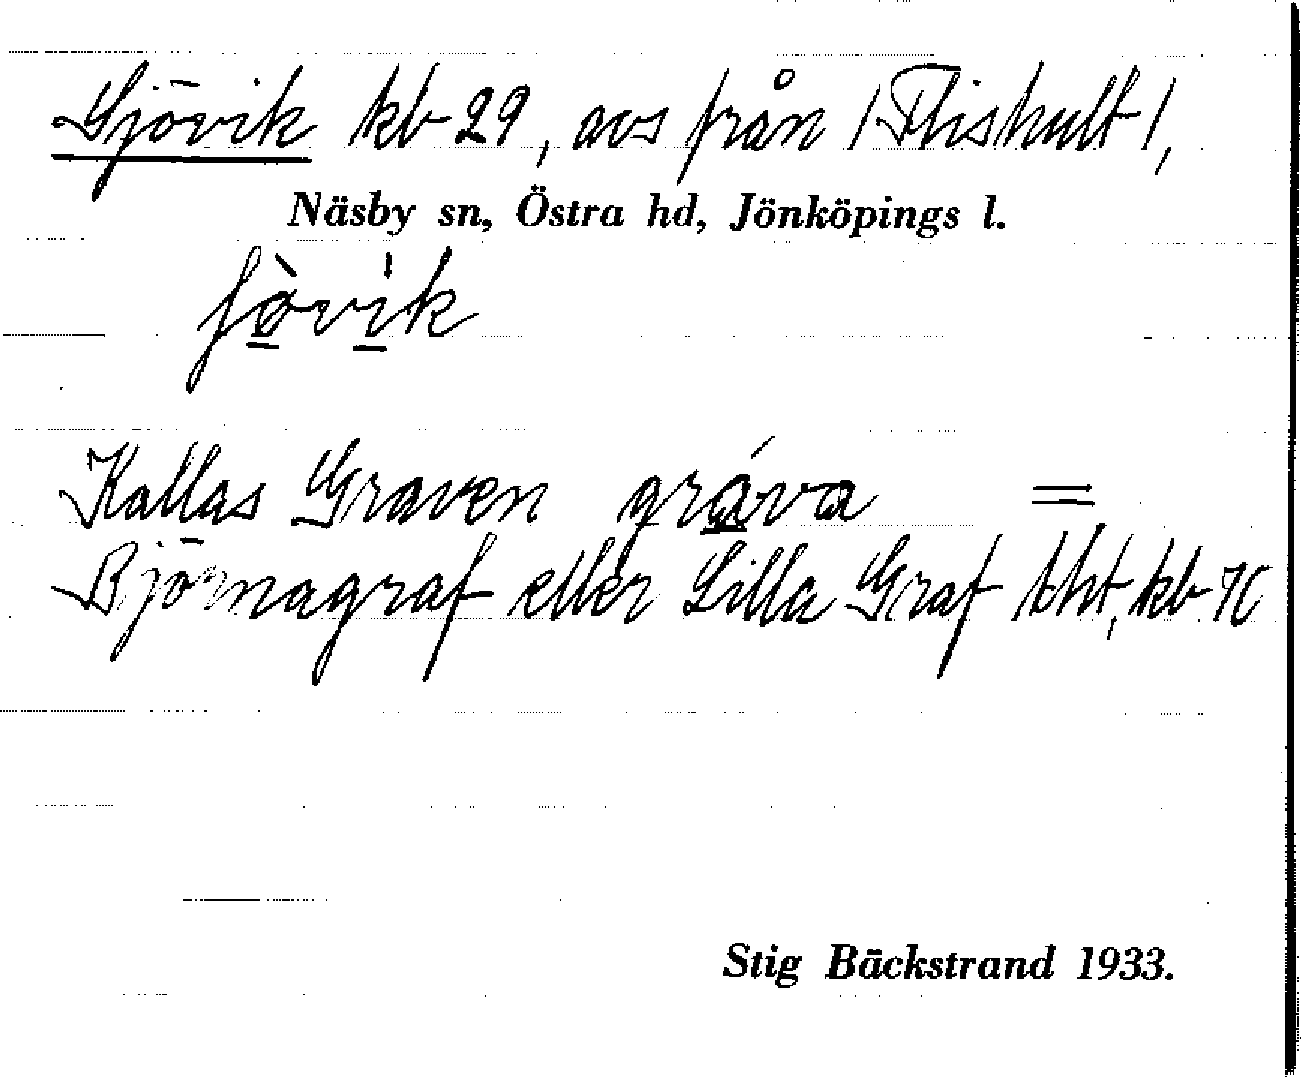 Sjövik kb 29, avs från /Flishult/,
Näsby sn, Östra hd, Jönköpings l.
ʃò̠vi̠k
Kallas Graven grá̠va =
Björnagraf eller Lilla Graf tht, kb
Stig Bäckstrand 1933.